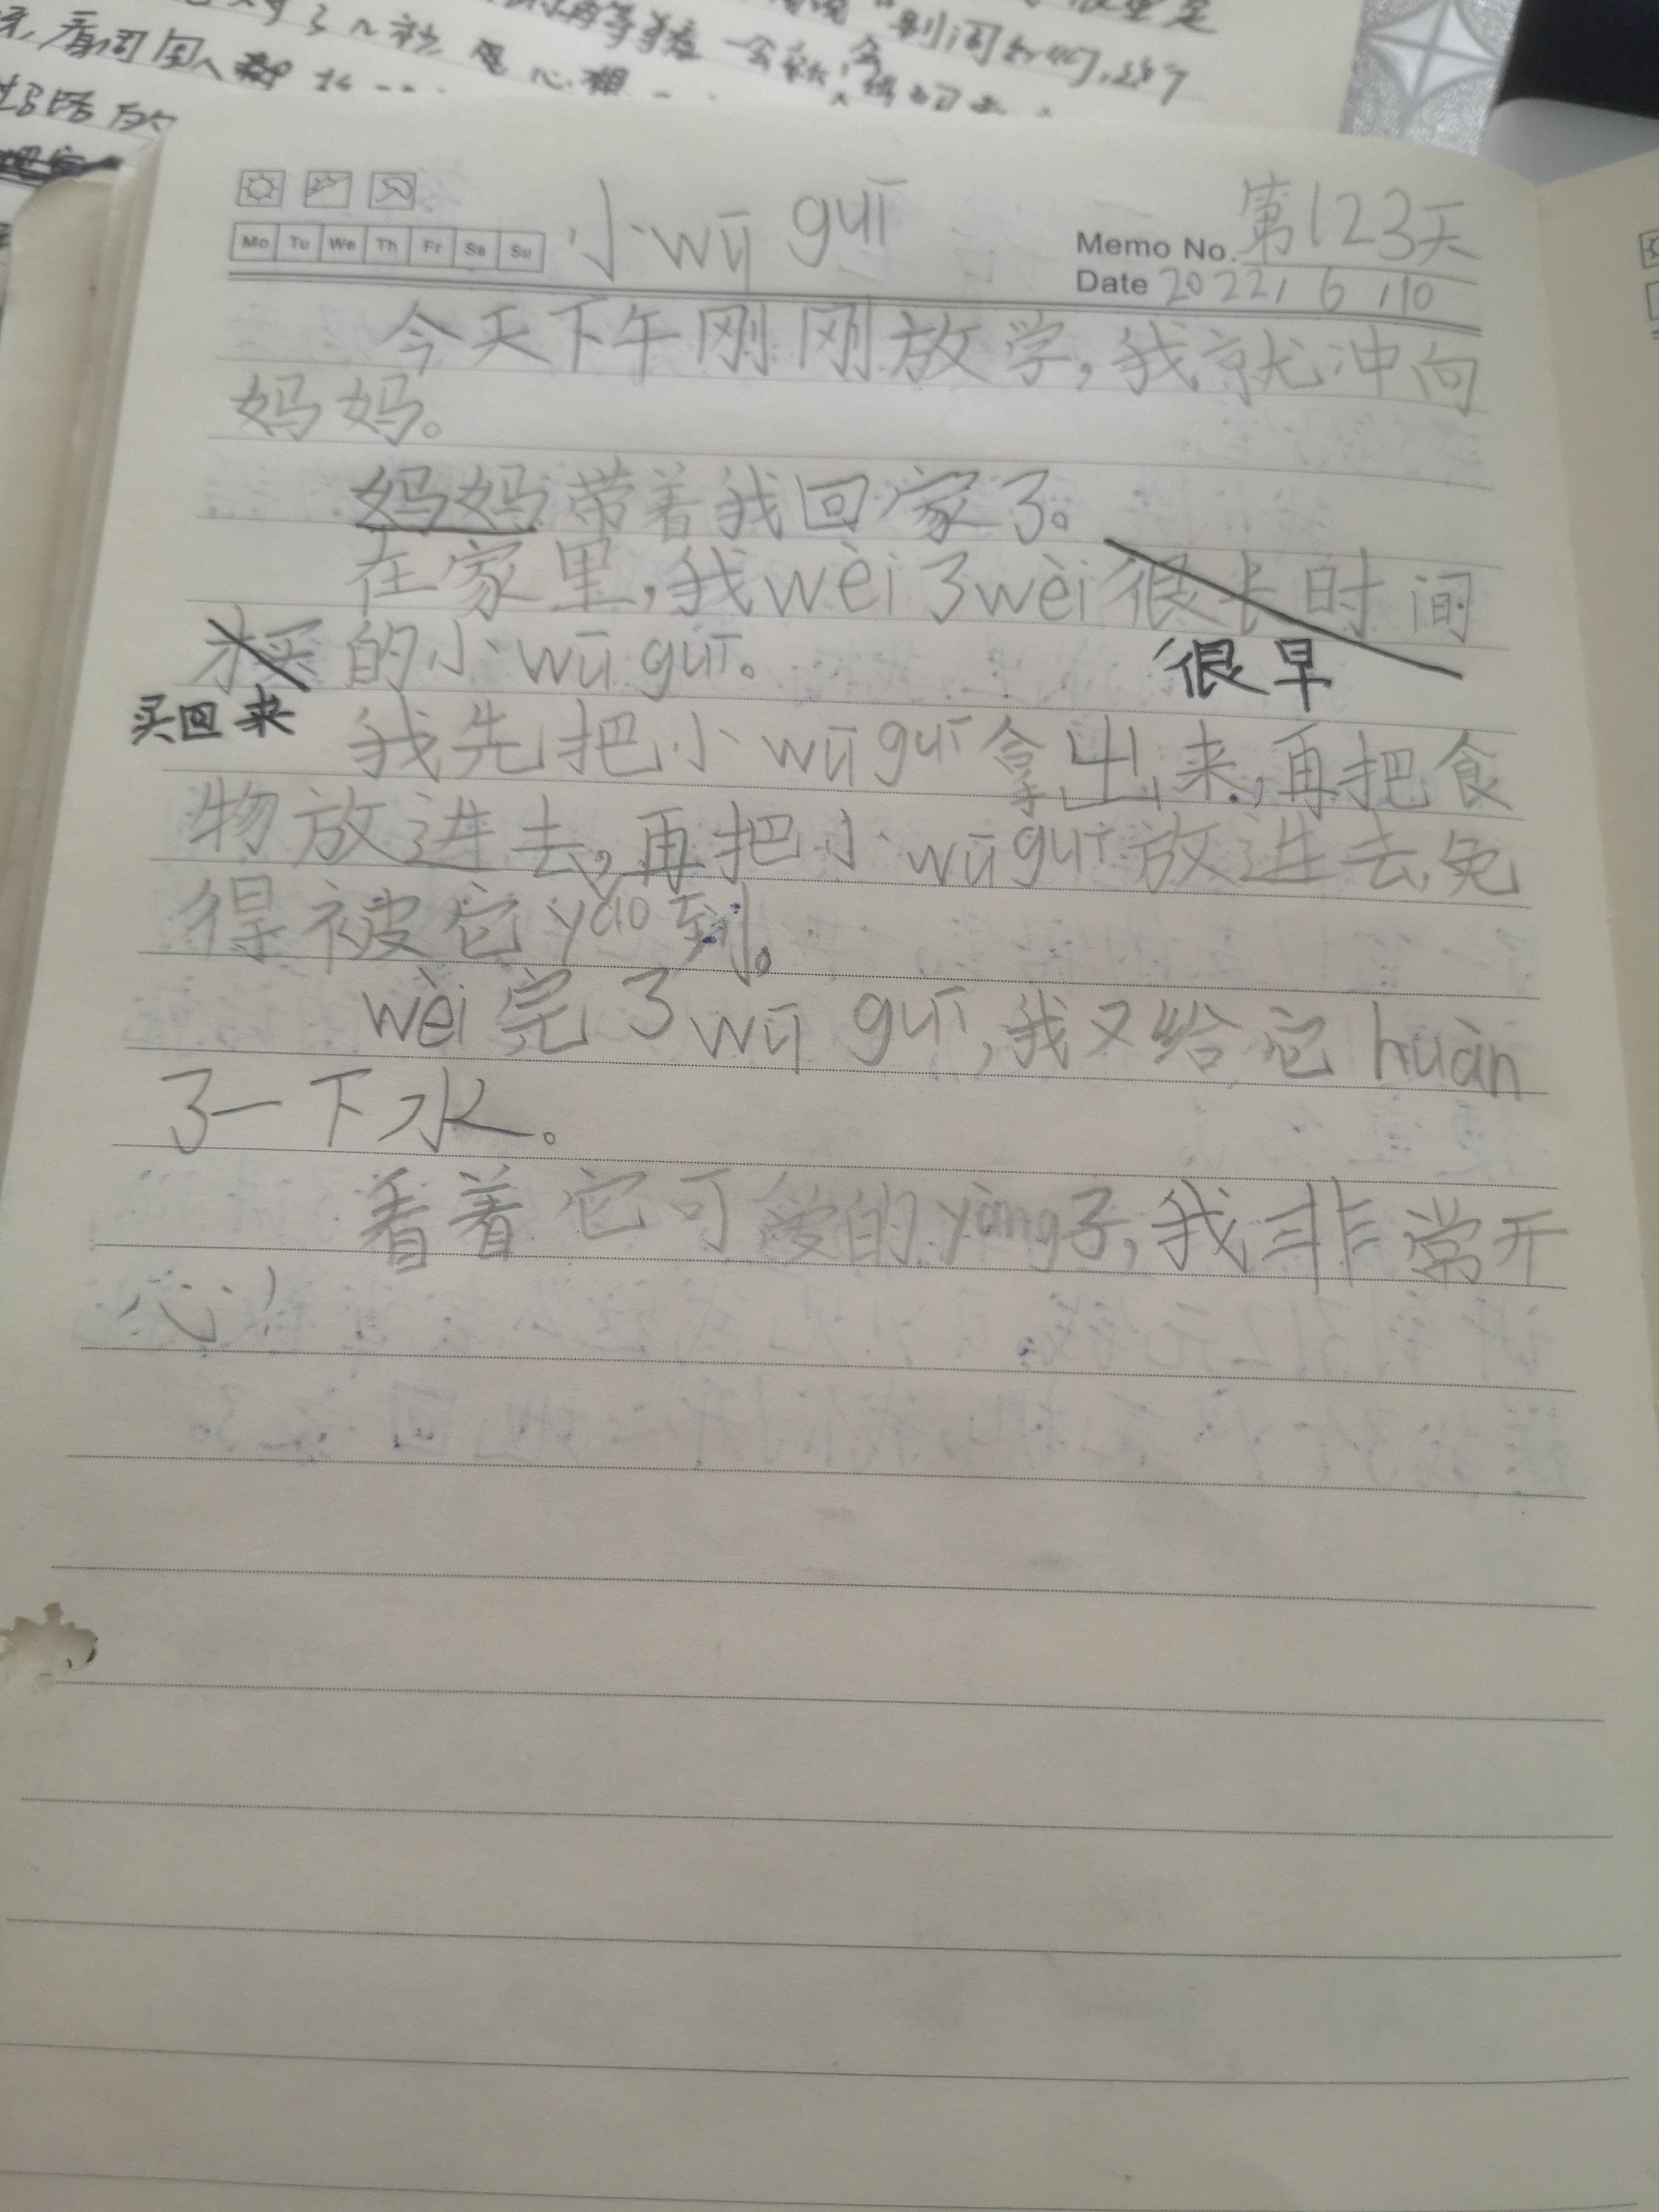 小wū guī
Mo Tu We Th Fr Sa Su
Memo No. 第123天
Date 2022, 6, 10
今天下午刚刚放学,我就冲向
妈妈。
妈妈带着我回家了。
在家里,我wèi了wèi很长时间
才买的小wū guī。
很早
买回来
我先把小wū guī拿出来,再把食
物放进去,再把小wū guī放进去,免
得被它yǎo到。
wèi完了wū guī,我又给它huàn
了一下水。
看着它可爱的yàng子,我非常开
心!